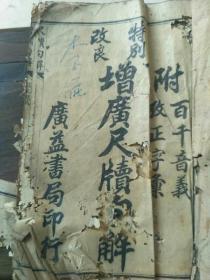 特別
改良
增廣尺牘句解
附百千音義
改正字彙
廣益書局印行